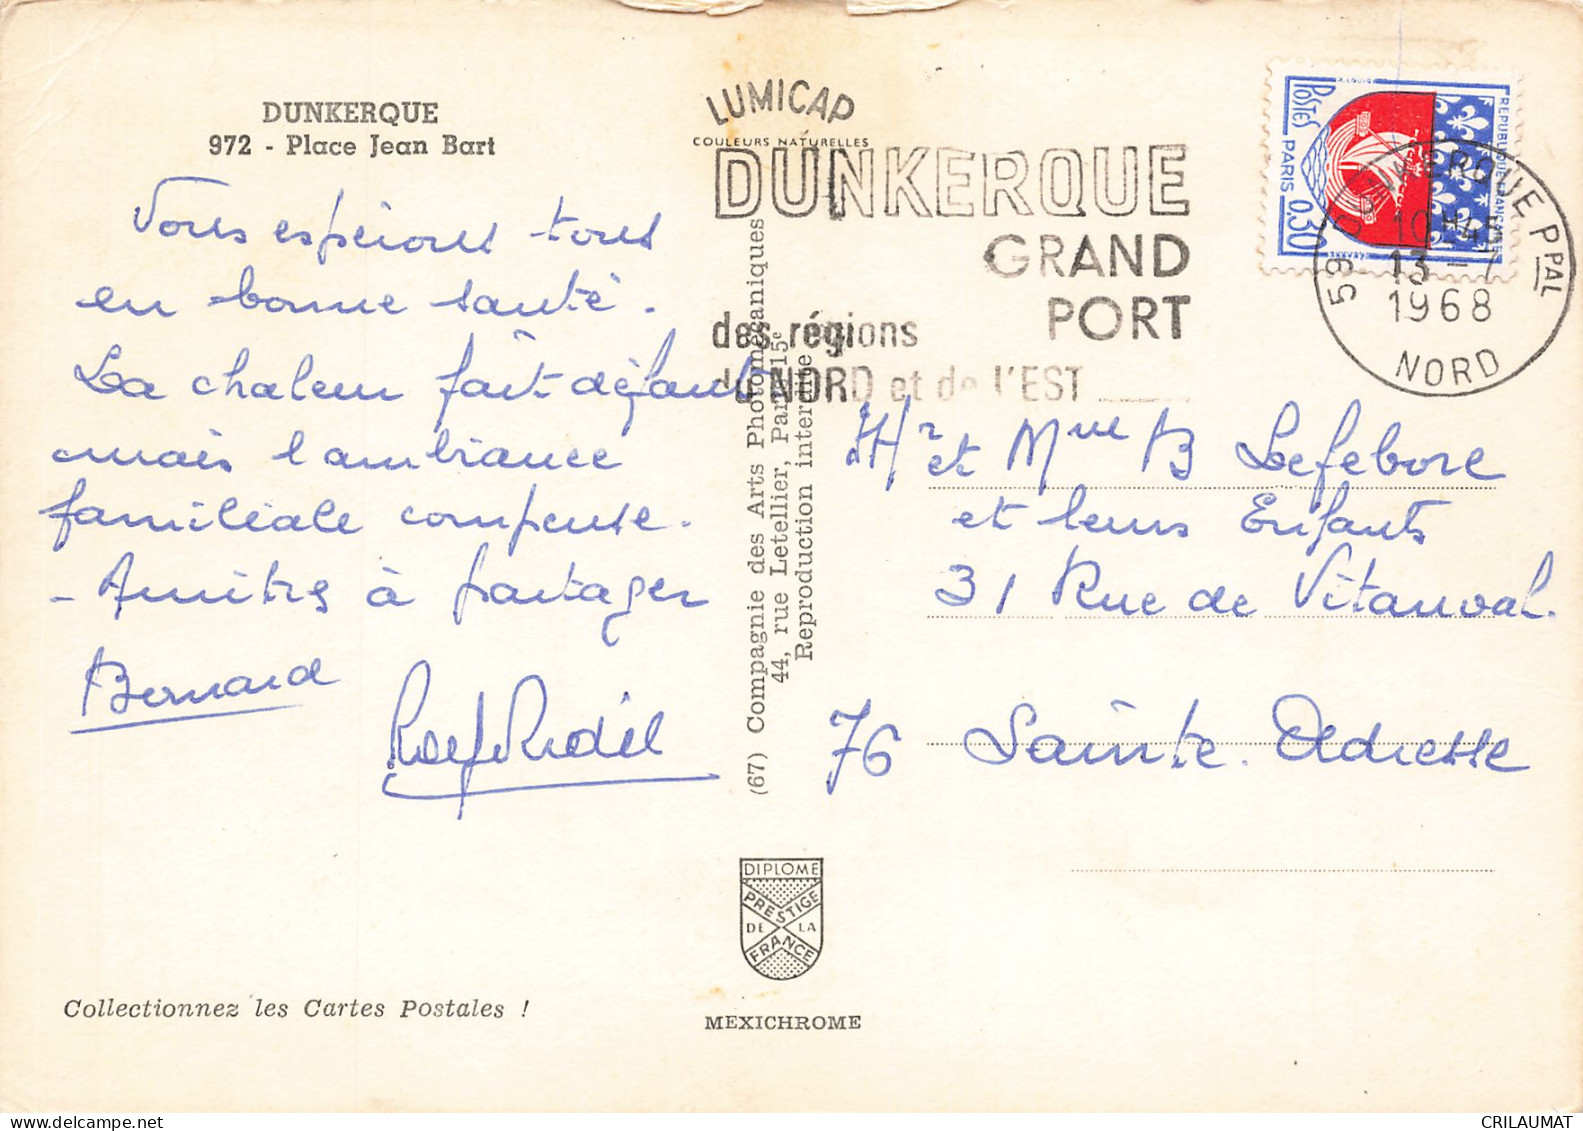 DUNKERQUE
972 - Place Jean Bart
Vous espérons tous
en bonne santé.
La chaleur fait défaut
mais l'ambiance
familiale compense.
- Amitiés à partager
Bernard
Collectionnez les Cartes Postales !
LUMICAP
COULEURS NATURELLES
DUNKERQUE
GRAND
PORT
des régions
du NORD et de l'EST
(67) Compagnie des Arts Photomécaniques
44, rue Letellier, Paris 15e
Reproduction interdite
DIPLOME
PRESTIGE
DE LA
FRANCE
MEXICHROME
REPUBLIQUE FRANÇAISE
POSTES
PARIS 0,30
59 DUNKERQUE PPAL
10H45
13 - 7
1968
NORD
Mr et Mme B Lefebvre
et leurs Enfants
31 Rue de Vitanval.
76 Sainte. Adresse
CRILAUMAT